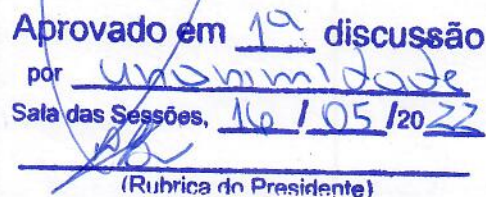 Aprovado em 1ª discussão
por unanimidade
Sala das Sessões, 16 / 05 /2022
(Rubrica do Presidente)